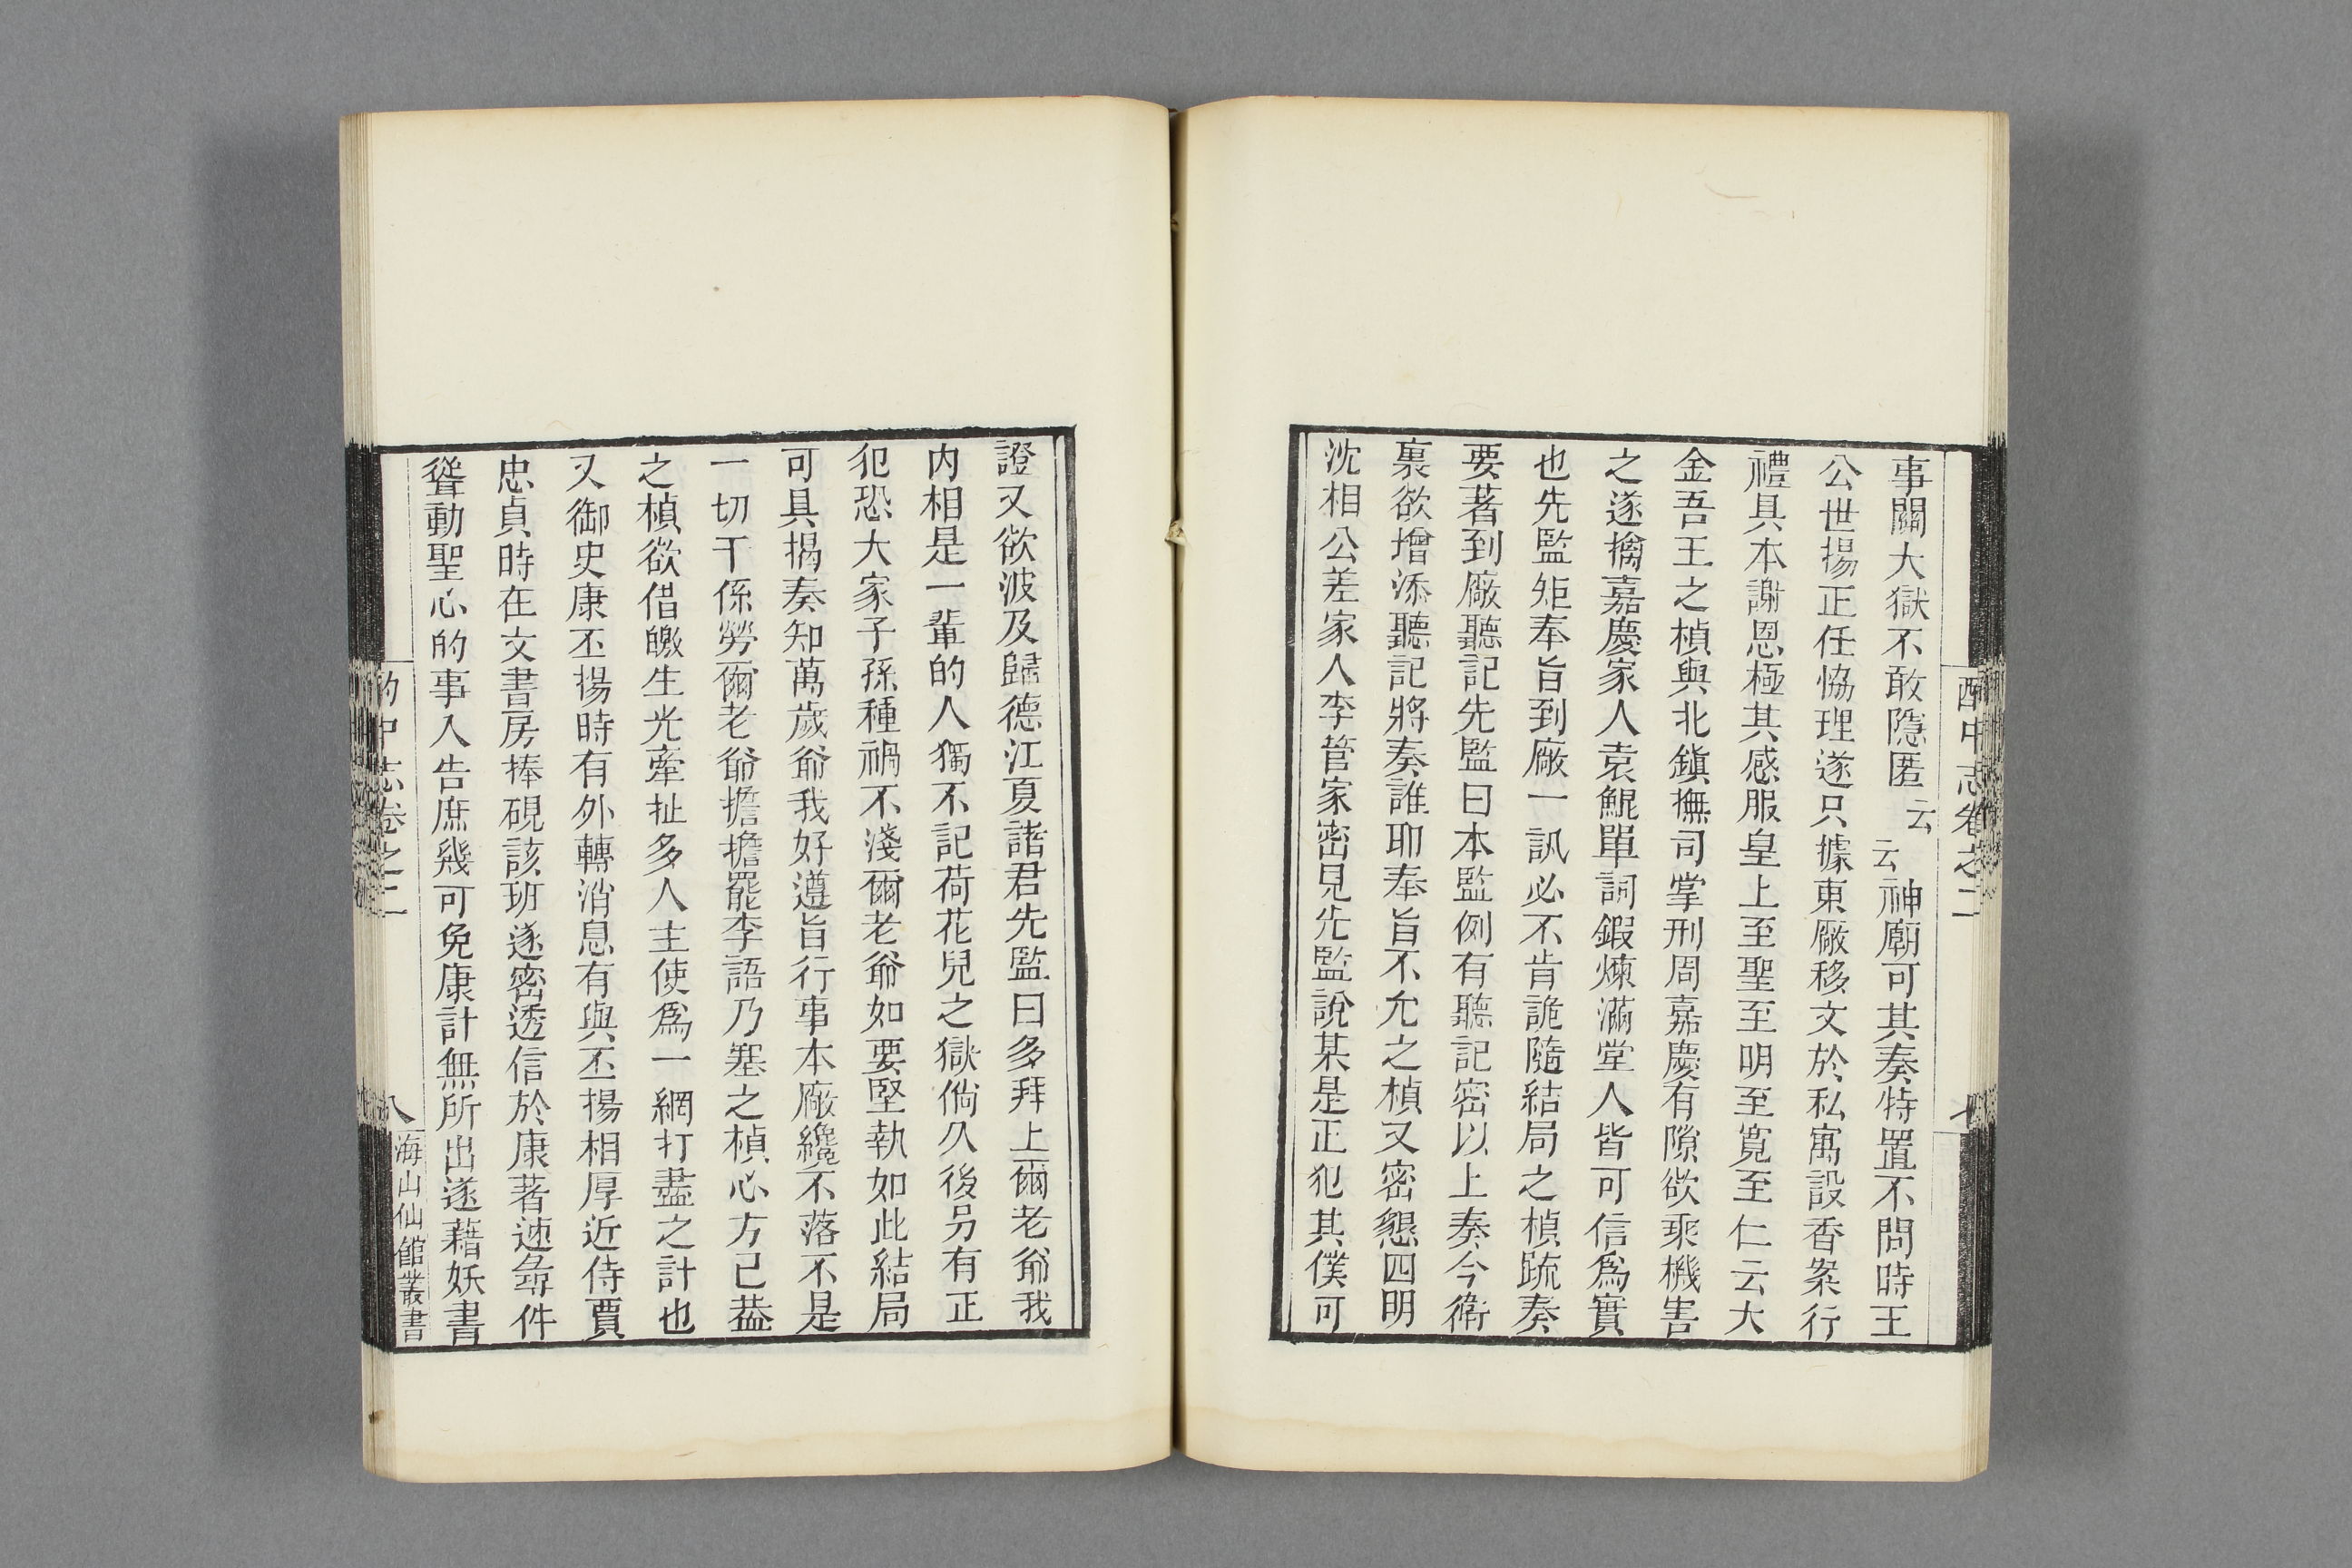 酌中志卷之二
七
事關大獄不敢隱匿云云神廟可其奏特置不問時王
公世揚正任協理遂只據東廠移文於私寓設香案行
禮具本謝恩極其感服皇上至聖至明至寬至仁云大
金吾王之楨與北鎮撫司掌刑周嘉慶有隙欲乘機害
之遂擒嘉慶家人袁鯤單詞鍜煉滿堂人皆可信爲實
也先監矩奉旨到廠一訊必不肯詭隨結局之楨䟽奏
要著到廠聽記先監曰本監例有聽記密以上奏今衛
裏欲增添聽記將奏誰耶奉旨不允之楨又密懇四明
沈相公差家人李管家密見先監說某是正犯其僕可
證又欲波及歸德江夏諸君先監曰多拜上爾老爺我
内相是一輩的人獨不記荷花兒之獄倘久後另有正
犯恐大家子孫種禍不淺爾老爺如要堅執如此結局
可具揭奏知萬歲爺我好遵旨行事本廠纔不落不是
一切干係勞爾老爺擔擔罷李語乃塞之楨心方已葢
之楨欲借皦生光牽扯多人主使爲一網打盡之計也
又御史康丕揚時有外轉消息有與丕揚相厚近侍賈
忠貞時在文書房捧硯該班遂密透信於康著速尋件
聳動聖心的事入告庶幾可免康計無所出遂藉妖書
酌中志卷之二
八
海山仙館叢書